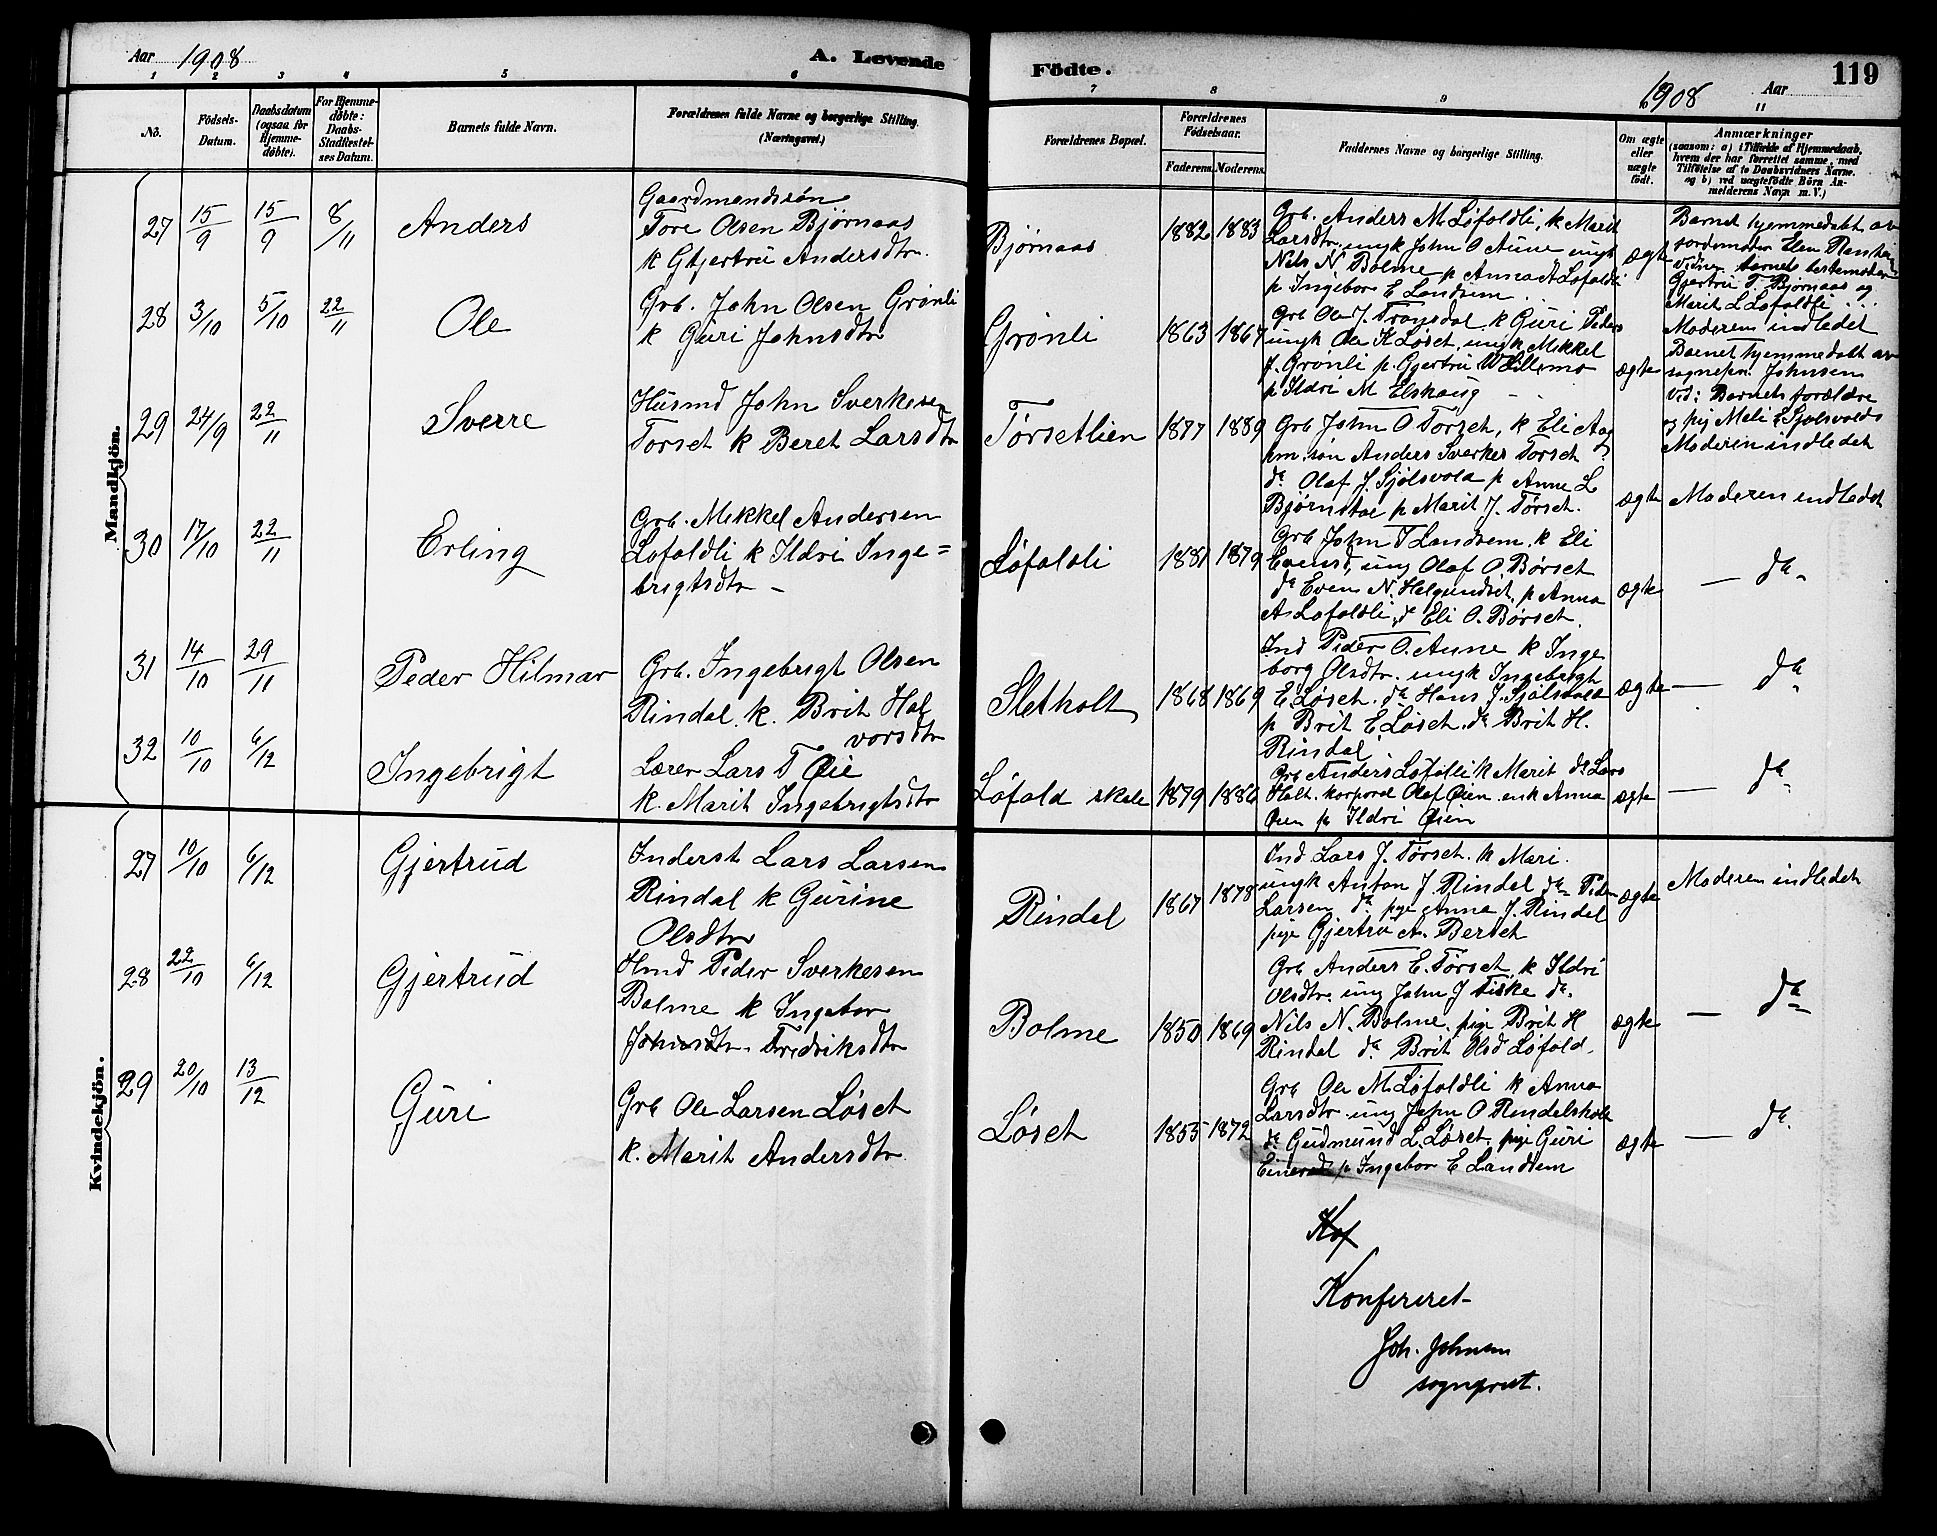 Aar 1908
A. Levende
Födte.
1908 Aar
119
1 2 3 4 5 6 7 8 9 11
No.
Födsels-
Datum.
Daabsdatum
(ogsaa for
Hjemme-
døbte).
For Hjemme-
døbte:
Daabs-
Stadfæstel-
ses Datum.
Barnets fulde Navn.
Forældrenes fulde Navne og borgerlige Stilling.
(Næringsvei.)
Forældrenes Bopæl.
Forældrenes
Födselsaar.
Faderens. Moderens.
Faddernes Navne og borgerlige Stilling.
Om ægte
eller
uægte
født.
Anmærkninger
(saasom: a) i Tilfælde af Hjemmedaab,
hvem der har forrettet samme, med
Tilføielse af to Daabsvidners Navne.
og b) ved uægtefødte Börn An-
melderens Navn m. V.)
Mandkjön.
27 15/9 15/9 8/11 Anders
Gaardmandssøn
Tore Olsen Bjørnaas
k Gjertru Andersdtr.
Bjørnaas 1882 1883
Grb. Anders M. Løfoldli, k Marit
Larsdtr, ungk John O Aune ungk
Nils N Bolme p Anna A Løfoldli
p Ingebor E Landsem
ægte
Barnet hjemmedøbt av
jordemoder Elen
Vidner barnets bestemoder
Gjertru T. Bjørnaas og
Marit L Løfoldli
28 3/10 5/10 22/11 Ole
Grb. John Olsen Grønli
k Guri Johnsdtr
Grønli 1863 1867
Grb Ole J. k Guri Peders
ungk Ole K Løset, ungk Mikkel
J. Grønli p. Gjertru Willemo
p Ildri M Elshaug
ægte
Moderen indledet
Barnet hjemmedøbt av
sognepr. Johnsen
Vid: Barnets forældre
og pij Meli E Sjølsvold
Moderen indledet
29 24/9 22/11 Sverre
Husmd John Sverkesen
Torset k Beret Larsdtr
Tørsetlien 1877 1889
Grb John O Torset, k Eli
søn Anders Sverkes Torset
do Olaf J. Sjølsvold p Anne L
Bjørnstal p Marit J. Tørset.
ægte
Moderen indledet
30 17/10 22/11 Erling
Grb. Mikkel Andersen
Lofoldli k Ildri Inge=
brigtsdtr -
Løfoldli 1881 1879
Grb John T Landsem. k Eli
Evensd, ung Olaf O Børset
do Even N. Helgundset, p Anna
A. Lofoldli, do Eli O. Børset.
ægte
— do
31 14/10 29/11 Peder Hilmar
Grb. Ingebrigt Olsen
Rindal. k. Brit Hal
vorsdtr
Sletholt 1868 1869
Ind Peder O. Aune k Inge
borg Olsdtr. ungk Ingebrigt
E Løset. do Hans J. Sjølsvold
p Brit E Løset. do Brit H.
Rindal
ægte
— do
32 10/10 6/12 Ingebrigt
Lærer Lars T Øie
k. Marit Ingebrigtsdtr
Løfold skole 1879 1886
Grb Anders Løfoldli k Marit do Lars
Halt. korporal Olaf Øien. enk Anna
Øien p Ildri Øien
ægte
— do
Kvindekjön.
27 10/10 6/12 Gjertrud
Inderst Lars Larsen
Rindal k Gurine
Olsdtr
Rindal 1867 1878
Ind Lars J. Tørset. k Mari.
ungk Anton J. Rindal do Peder
Larsen do pige Anna J. Rindal
pige Gjertru A. Berset
ægte
Moderen indledet
28 22/10 6/12 Gjertrud
Hmd Peder Sverkesen
Bolme k Ingebor
Johnsdtr. Fredriksdtr
Bolme 1850 1869
Grb Anders E. Tørset, k Ildri
Olsdtr. ung John J Fiske do.
Nils N. Bolme. pige Brit H
Rindal do Brit Olsd Løfold.
ægte
— do
29 20/10 13/12 Guri
Grb Ole Larsen Løset
k. Marit Andersdtr.
Løset 1855 1872
Grb Ole M. Løfoldli k Anna
Larsdtr. ung John O Rindalshole
do Gudmund L. Løset. pige Guri
p Ingebor E Landsem
ægte
— do.
Kof
Konfereret
Joh. Johnsen
sogneprest.